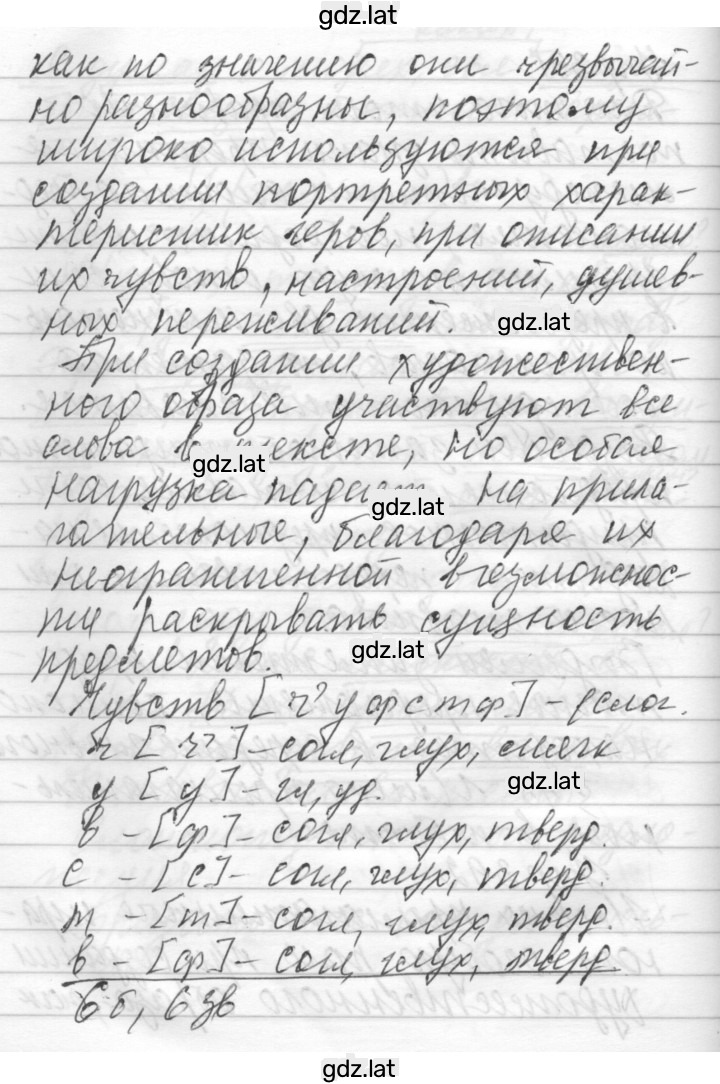 gdz.lat
как по значению они чрезвычай-
но разнообразны, поэтому
широко используются при
создании портретных харак-
теристик геров, при описании
их чувств, настроений, душев-
ных переживаний. gdz.lat
При создании художествен-
ного образа участвуют все
слова в тексте, но особая
gdz.lat
нагрузка падает на прила-
gdz.lat
гательные, благодаря их
неограниченной возможнос-
ти раскрывать сущность
предметов. gdz.lat
Чувств [ч'уфстф] - 1 слог.
ч [ч'] - согл, глух, смягк
у [у] - гл, уд. gdz.lat
в - [ф] - согл, глух, тверд.
с - [с] - согл, глух, тверд.
т - [т] - согл, глух, тверд.
в - [ф] - согл, глух, тверд
6 б, 6 зв
gdz.lat